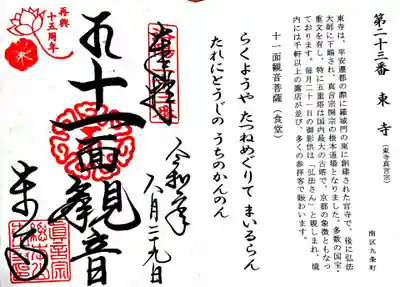 第二十三番 東寺 (東寺真言宗)
南区九条町
東寺は、平安遷都の際に羅城門の東に創建された官寺で、後に弘法
大師に下賜され、真言宗開宗の根本道場となりました。多数の国宝・
重文を有し、特に五重塔は国内最大の古塔で、京都の象徴ともなっ
ております。毎月二十一日の御影供は「弘法さん」と親しまれ、境
内には千軒以上の露店が並び、多くの参拝客で賑わいます。
十一面観音菩薩 (食堂)
らくようや たつねめぐりて まいるらん
たれにとうじの うちのかんのん
奉拝
令和元年
八月二十九日
十一面観音
東寺
再興
十五周年